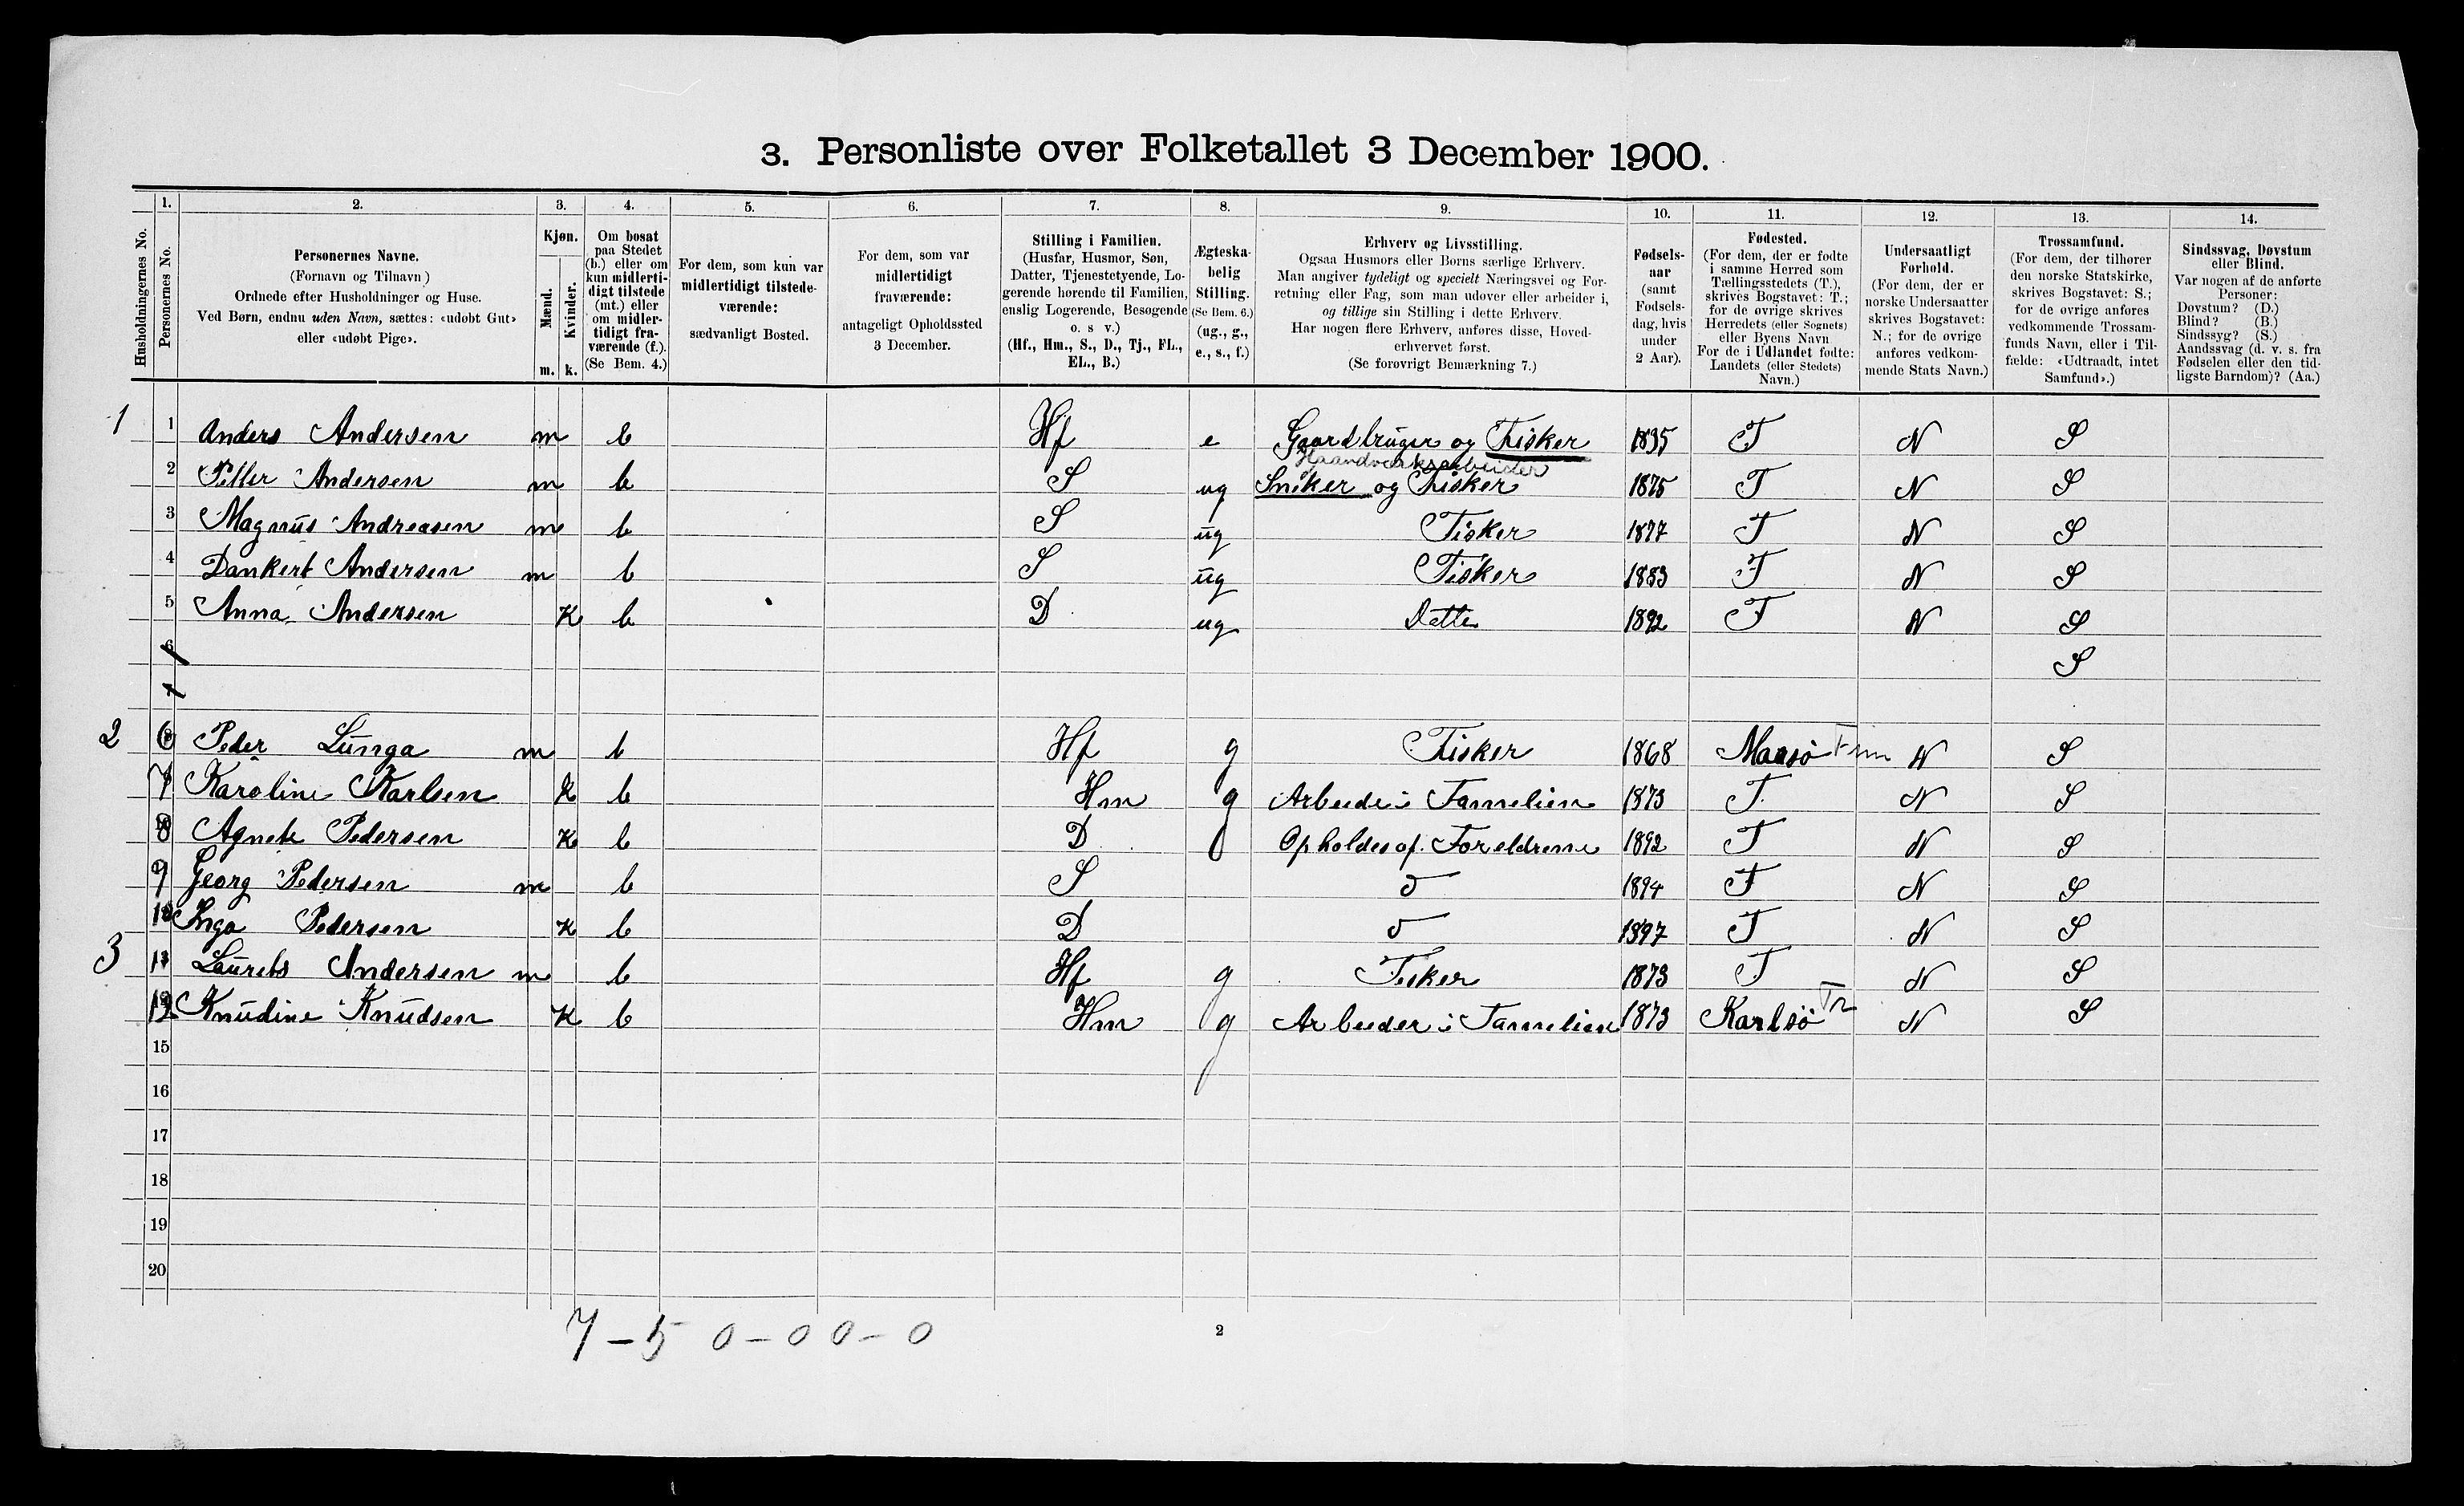 3. Personliste over Folketallet 3 December 1900.
Husholdningernes No.
1. Personernes No.
2. Personernes Navne.
(Fornavn og Tilnavn)
Ordnede efter Husholdninger og Huse.
Ved Børn, endnu uden Navn, sættes: «udøbt Gut»
eller «udøbt Pige».
3. Kjøn.
Mænd. m.
Kvinder. k.
4. Om bosat
paa Stedet
(b.) eller om
kun midlerti-
digt tilstede
(mt.) eller
om midler-
tidigt fra-
værende (f.).
(Se Bem. 4.)
5. For dem, som kun var
midlertidigt tilstede-
værende:
sædvanligt Bosted.
6. For dem, som var
midlertidigt
fraværende:
antageligt Opholdssted
3 December.
7. Stilling i Familien.
(Husfar, Husmor, Søn,
Datter, Tjenestetyende, Lo-
gerende hørende til Familien,
enslig Logerende, Besøgende
o. s v.)
(Hf., Hm., S., D., Tj., FL.,
EL., B.)
8. Ægteska-
belig
Stilling.
(Se Bem. 6.)
(ug., g.,
e., s., f.)
9. Erhverv og Livsstilling.
Ogsaa Husmors eller Børns særlige Erhverv.
Man angiver tydeligt og specielt Næringsvei og For-
retning eller Fag, som man udøver eller arbeider i,
og tillige sin Stilling i dette Erhverv.
Har nogen flere Erhverv, anføres disse, Hoved-
erhvervet først.
(Se forøvrigt Bemærkning 7.)
10. Fødsels-
aar
(samt
Fødsels-
dag, hvis
under
2 Aar).
11. Fødested.
(For dem, der er fødte
i samme Herred som
Tællingsstedets (T.),
skrives Bogstavet: T.;
for de øvrige skrives
Herredets (eller Sognets)
eller Byens Navn
For de i Udlandet fødte:
Landets (eller Stedets)
Navn.)
12. Undersaatligt
Forhold.
(For dem, der er
norske Undersaatter
skrives Bogstavet:
N.; for de øvrige
anføres vedkom-
mende Stats Navn.)
13. Trossamfund.
(For dem, der tilhører
den norske Statskirke,
skrives Bogstavet: S.;
for de øvrige anføres
vedkommende Trossam-
funds Navn, eller i Til-
fælde: «Udtraadt, intet
Samfund».)
14. Sindssvag, Døvstum
eller Blind.
Var nogen af de anførte
Personer:
Døvstum? (D.)
Blind? (B.)
Sindssyg? (S.)
Aandssvag (d. v. s. fra
Fødselen eller den tid-
ligste Barndom)? (Aa.)
1 1 Anders Andersen m b Hf e Gaardbruger og Fisker 1835 T N S
Haandverksarbeider
2 Petter Andersen m b S ug Sniker og Fisker 1875 T N S
3 Magnus Andreasen m b S ug Fisker 1877 T N S
4 Dankert Andersen m b S ug Fisker 1883 T N S
5 Anna Andersen K b D ug Datter 1892 T N S
6 S
7
2 6 Peder Lunga m b Hf g Fisker 1868 Maasø Finm N S
7 Karoline Karlsen K b Hm g Arbeide i Famelien 1873 T N S
8 Agnete Pedersen K b D Opholdes af Foreldrene 1892 T N S
9 Georg Pedersen m b S d 1894 T N S
10 Inga Pedersen K b D d 1897 T N S
3 11 Laurets Andersen m b Hf g Fisker 1873 T N S
12 Knudine Knudsen K b Hm g Arbeider i Famelien 1873 Karlsø Tr N S
15
16
17
18
19
20
7 - 5 0 - 0 0 - 0
2